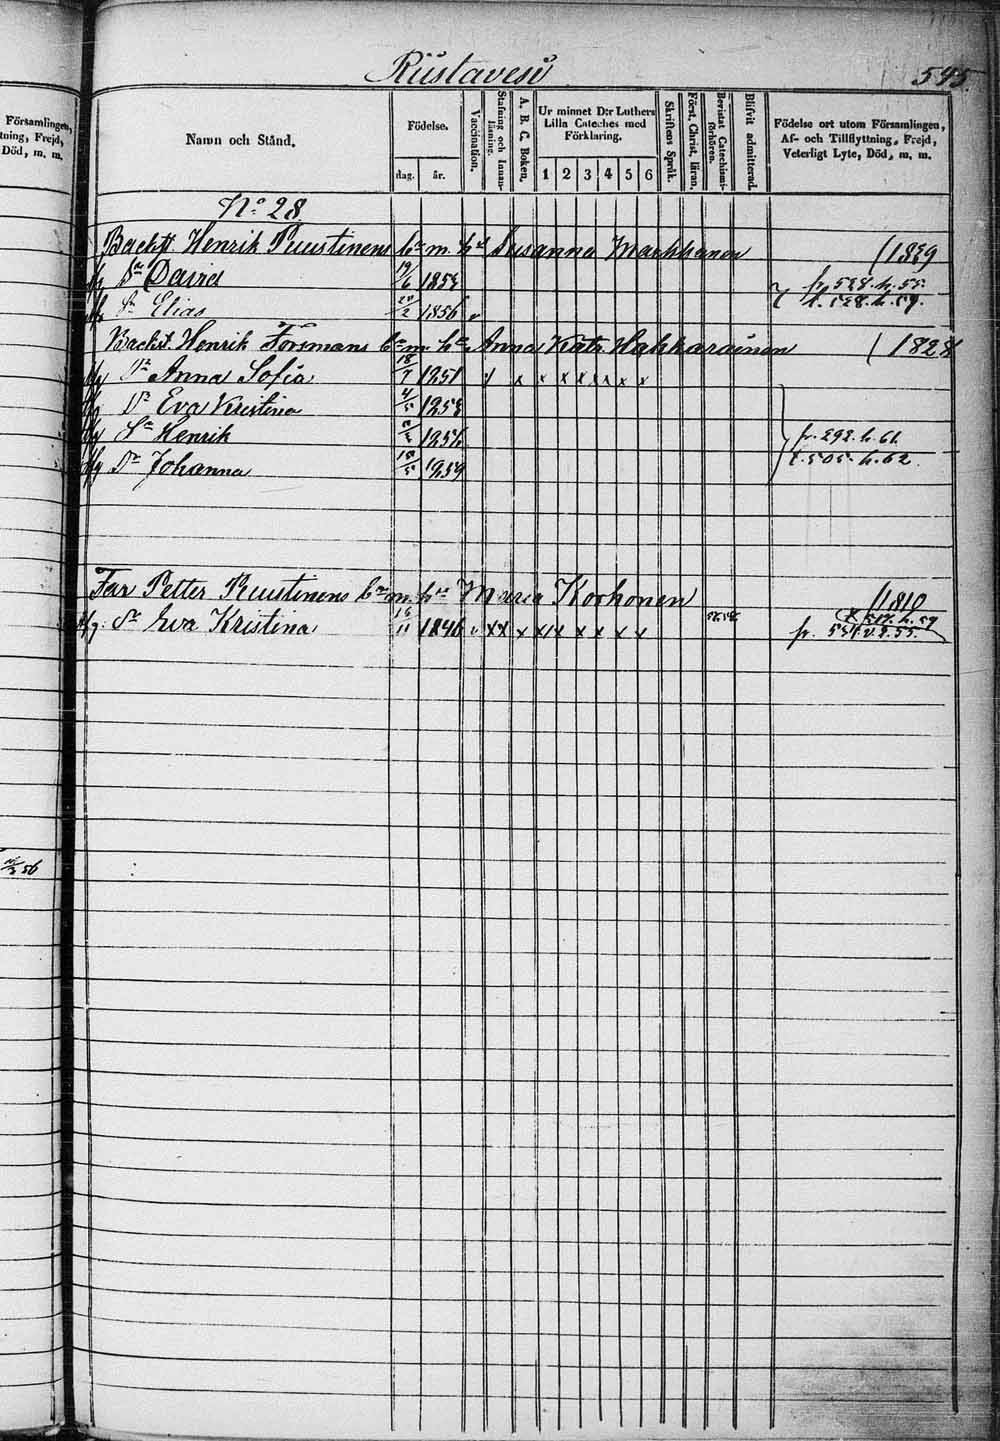 Församlingen,
tning, Frejd,
Död, m. m.
Rüstavesi
545.
Namn och Stånd.
Födelse.
dag. år.
Vaccination.
Stafning och Innanläsning.
A. B. C. Boken.
Ur minnet D:r Luthers
Lilla Cateches med
Förklaring.
1 2 3 4 5 6
Skriftens Språk.
Först, Christ, läran.
Bevistat Catechismiförhören.
Blifvit admitterad.
Födelse ort utom Församlingen,
Af- och Tillflyttning, Frejd,
Veterligt Lyte, Död, m. m.
No 28.
Backst Henrik Puustinens bn m. hu Susanna Markkanen (1839
Sn David 19/6 1853 fr. 528. h. 55.
Sn Elias 1856 v t. 528. h. 59.
Backst. Henrik Forsmans bn m. hu Anna Katr. Hakkarainen (1828
Dr Anna Sofia 18/7 1851 v x x x x x x x x x
Dr Eva Kristina 4/5 1853
Sn Henrik 1856 fr. 292. h. 61.
Dr Johanna 1859 t. 505. h. 62.
Far Petter Puustinens bn m. hu Maria Korhonen (1810
Dr Eva Kristina 16/11 1846 v x x x x x x x x x x fr. 531. v. s. 55.
56